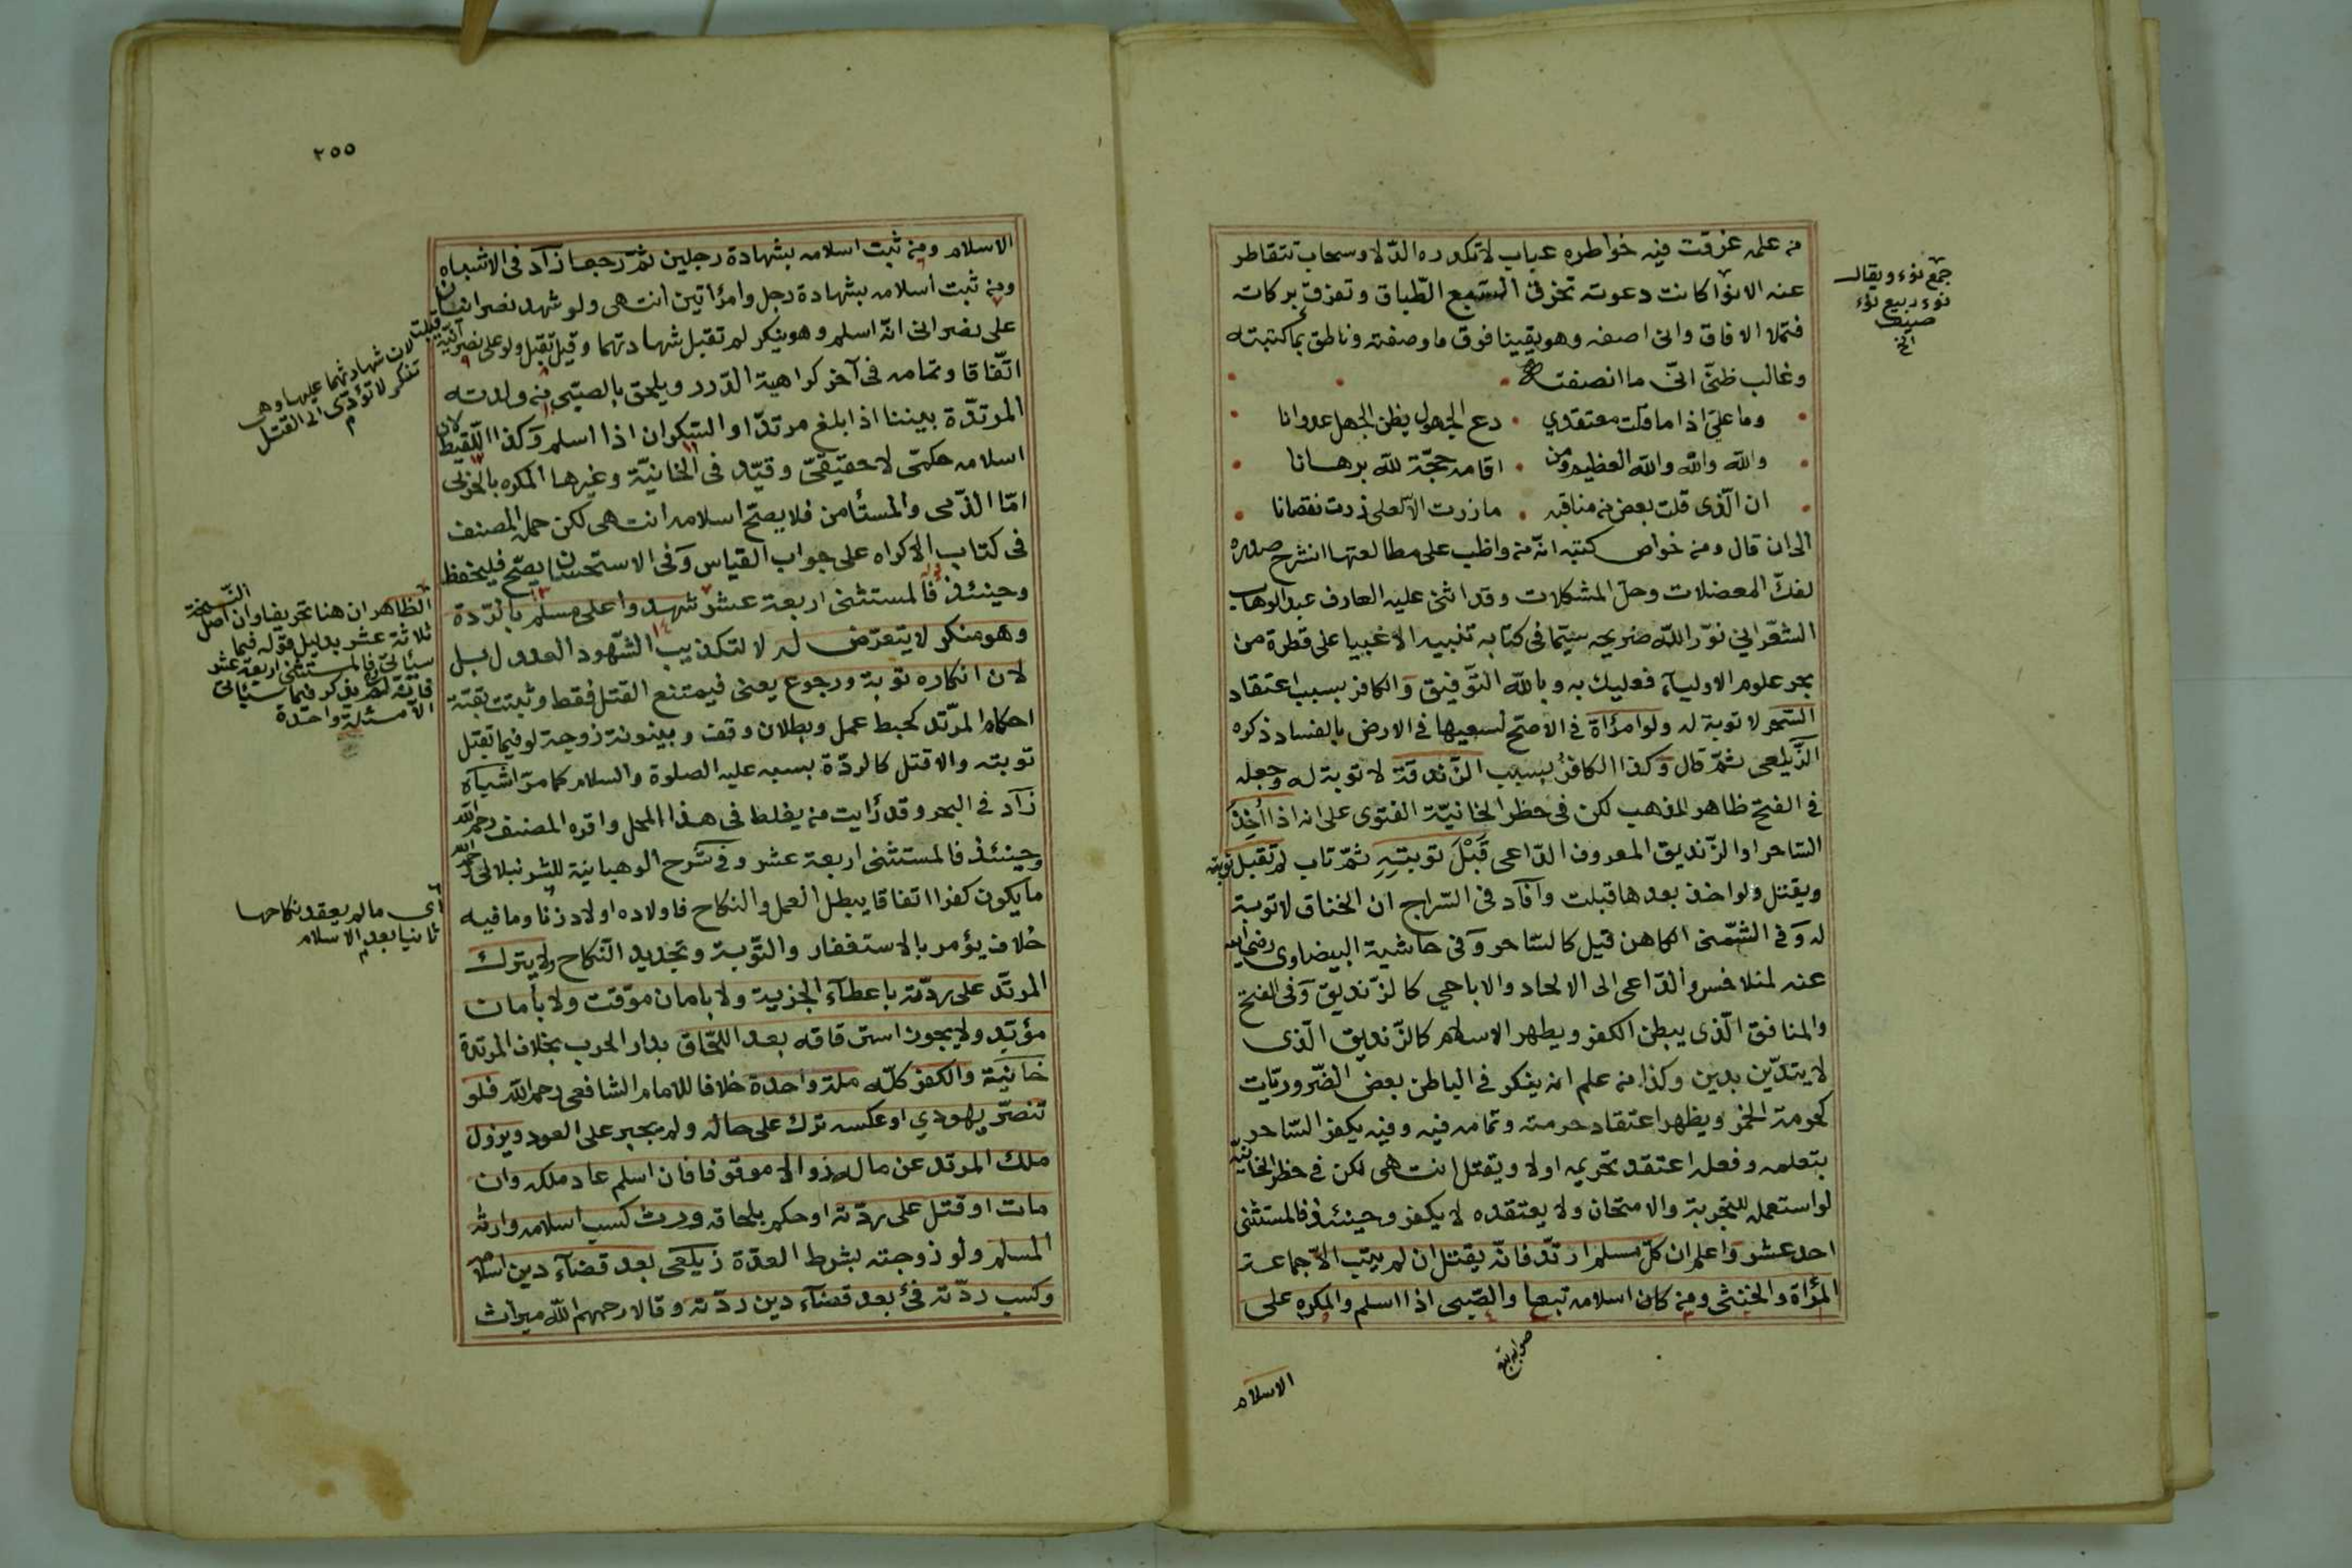 من علمه غرقت فيه خواطره عباب لا تكدره الدلا وسحاب تتقاطر
عنه الانوا كانت دعوته تخرق السبع الطباق وتفرق بركاته
فتملا الافاق وانى اصفه وهو يقينا فوق ما وصفته وناطق بما كتبته
وغالب ظنّي انّي ما انصفته
وما عليّ اذا ما قلت معتقدي دع الجهول يظن الجهل عدوانا
والله والله والله العظيم ومن اقامه حجّة لله برهانا
ان الّذى قلت بعض من مناقبه ما زدت الا لعلى زدت نقصانا
الى ان قال ومن خواص كتبه انّه من واظب على مطالعتها انشرح صدره
لفكّ المعضلات وحلّ المشكلات وقد اثنى عليه العارف عبد الوهاب
الشعّراني نوّر الله ضريحه سيّما فى كتابه تنبيه الاغبيا على قطرة من
بحر علوم الاوليآء فعليك به وبالله التّوفيق وَالكافر بسبب اعتقاد
السّحر لا توبة له ولو امرأة في الاصحّ لسعيها في الارض بالفساد ذكره
الزّيلعى ثمّ قال وَكذا الكافر بسبب الزّندقة لا توبة له وجعله
في الفتح ظاهر المذهب لكن في حظر الخانيّة الفتوى على انه اذا اُخِذَ
السّاحر او الزّنديق المعروف الدّاعى قَبْلَ توبتِهِ ثمّ تاب لم تقبل توبته
ويقتل ولو اخذ بعدها قبلت وافاد في السّراج ان الخناق لا توبة
له وَفي الشّمّنى الكاهن قيل كالسّاحر وَفى حاشية البيضاوى رضى الله
عنه لمنلا خسرو الدّاعى الى الالحاد والاباحي كالزّنديق وَفى الفتح
والمنافق الّذى يبطن الكفر ويظهر الاسلام كالزّنديق الّذى
لا يتديّن بدين وكذا من علم انه ينكر في الباطن بعض الضّروريّات
كحرمة الخمر ويظهر اعتقاد حرمته وتمامه فيه وفيه يكفر السّاحر
بتعلمه وفعله اعتقد تحريمه اولا ويقتل انتهى لكن في حظر الخانيّة
لو استعمله للتجربة والامتحان ولا يعتقده لا يكفر وحينئذ فالمستثنى
احد عشر وَاعلم ان كلّ مسلم ارتدّ فانّه يقتل ان لم يتب الاّ جماعة
المرأة والخنثى ومن كان اسلامه تبعا والصّبى اذا اسلم والمكره على
جمع نوء ويقال
نوء ربيع نوء
صيف
الخ
الاسلام
٢٥٥
الاسلام ومن ثبت اسلامه بشهادة رجلين ثمّ رجعا زآد فى الاشباه
ومن ثبت اسلامه بشهادة رجل وامرأتين انتهى ولو شهد نصرانيان
على نصرانى انّه اسلم وهو ينكر لم تقبل شهادتهما وقيل تقبل ولو على نصرآنيّة قبلت
اتّفاقا وتمامه فى آخر كراهية الدّرر ويلحق بالصبّى من ولدته
المرتدّة بيننا اذا بلغ مرتدّا والسّكران اذا اسلم وَكذا اللّقيط لان
اسلامه حكمّى لا حقيقيّ وقيّد فى الخانيّة وغيرها المكره بالحربى
امّا الذّمى والمستأمن فلا يصحّ اسلامه انتهى لكن حمله المصنف
فى كتاب الاكراه على جواب القياس وَفى الاستحسان يصحّ فليحفظ
وحينئذ فالمستثنى اربعة عشر شهدوا على مسلم بالرّدة
وهو منكر لا يتعرّض له لا لتكذيب الشّهود العدول بل
لان انكاره توبة ورجوع يعنى فيمتنع القتل فقط وثبتت بقيّة
احكام المرّتد كحبط عمل وبطلان وقف وبينونة زوجة لو فيما تقبل
توبته والا قتل كالردّة بسبه عليه الصلوة والسلام كما مرّ اشباه
زآد في البحر وقد رأيت من يغلط فى هذا المحل واقره المصنف رحمه الله
وحينئذ فالمستثنى اربعة عشر وفى شرح الوهبانية للشرنبلالى رحمه الله
ما يكون كفرا اتفاقا يبطل العمل والنكاح فاولاده اولاد زنا وما فيه
خلاف يؤمر بالاستغفار والتّوبة وتجديد النّكاح ولا يترك
المرتد على ردّته باعطآء الجزية ولا بامان موّقت ولا بأمان
مؤبّد ولا يجوز استرقاقه بعد اللّحاق بدار الحرب بخلاف المرتدة
خانيّة والكفر كلّه ملة واحدة خلافا للامام الشافعى رحمه الله فلو
تنصّر يهودي او عكسه ترك على حاله ولم يجبر على العود ويزول
ملك المرتد عن ماله زوالا موقوفا فان اسلم عاد ملكه وان
مات او قتل على ردّته او حكم بلحاقه ورث كسب اسلامه وارثه
المسلم ولو زوجته بشرط العدّة زيلعى بعد قضآء دين اسلامه
وكسب ردّته فئ بعد قضآء دين ردّته وقالا رحمهم الله ميراث
لان شهادتهما عليها وهى
تنكر لا تؤدّى الى القتل
م
الظاهر ان هنا تحريفا وان اصل النّسخة
ثلاثة عشر بدليل قوله فيما
سيأتى فالمستثنى اربعة عشر
فانّه لم يذكر فيما سيأتى
الا مسئلة واحدة
اى ما لم يعقد نكاحها
ثانيا بعد الاسلام
م